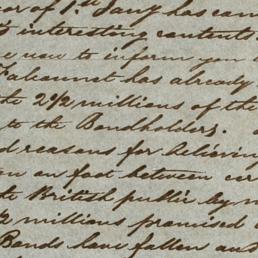 of 1st Jany has cam
interesting contents
now to inform you
has already
the 2½ millions of the
to the Bondholders.
reasons for believin
on foot between cer
British public by
millions promised
Bonds have fallen